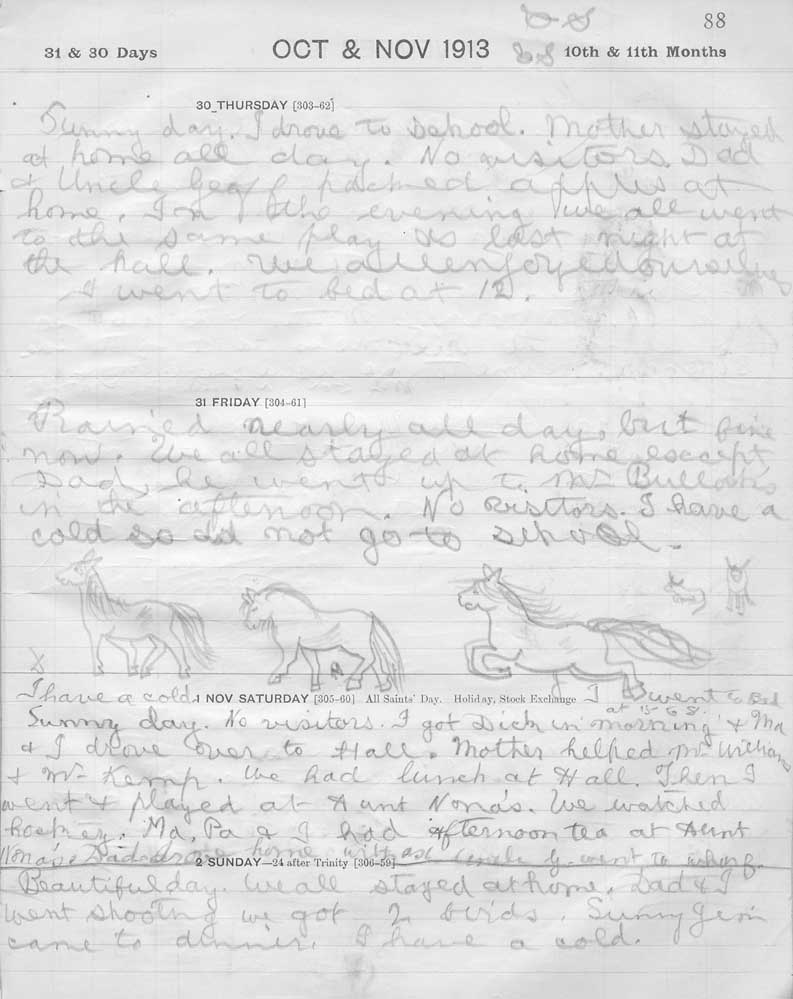 88
31 & 30 Days OCT & NOV 1913 10th & 11th Months
30 THURSDAY [303-62]
Sunny day. I drove to school. Mother stayed
at home all day. No visitors. Dad
& Uncle Geoff packed apples at
home. In the evening we all went
to the same play as last night at
the hall. We all enjoyed ourselves
I went to bed at 12.
31 FRIDAY [304-61]
Rained nearly all day, but fine
now. We all stayed at home except
Dad, he went up to Mr Bullocks
in the afternoon. No visitors. I have a
cold so did not go to school.
X
I have a cold 1 NOV SATURDAY [305-60] All Saints' Day. Holiday, Stock Exchange I went to Bed
at 15 to 8.
Sunny day. No visitors. I got Dick in morning & Ma
& I drove over to Hall. Mother helped Mrs Williams
& Mrs Kemp. We had lunch at Hall. Then I
went & played at Aunt Nona's. We watched
hockey. Ma, Pa & I had afternoon tea at Aunt
Nona's Dad drove home with us Uncle G. went to wharf.
2 SUNDAY—24 after Trinity [306-59]
Beautiful day. We all stayed at home. Dad & I
went shooting we got 2 birds. Sunny Jim
came to dinner. I have a cold.